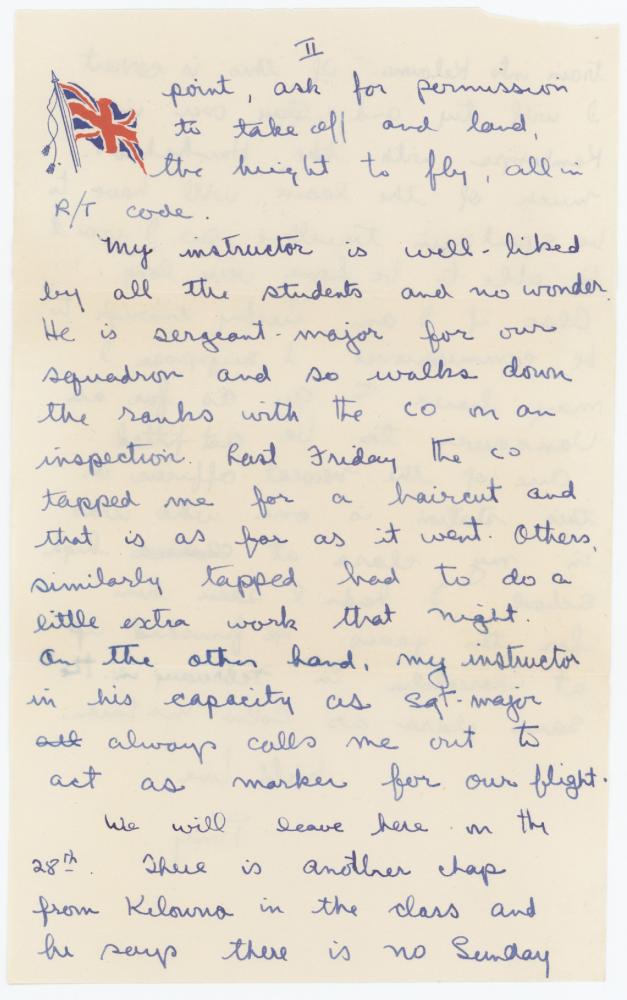 II
point, ask for permission
to take off and land,
the height to fly, all in
R/T code.
My instructor is well-liked
by all the students and no wonder.
He is sergeant-major for our
squadron and so walks down
the ranks with the CO on an
inspection. Last Friday the CO
tapped me for a haircut and
that is as far as it went. Others,
similarly tapped had to do a
little extra work that night.
On the other hand, my instructor
in his capacity as Sgt-major
all always calls me out to
act as marker for our flight.
We will leave here on the
28th. There is another chap
from Kelowna in the class and
he says there is no Sunday